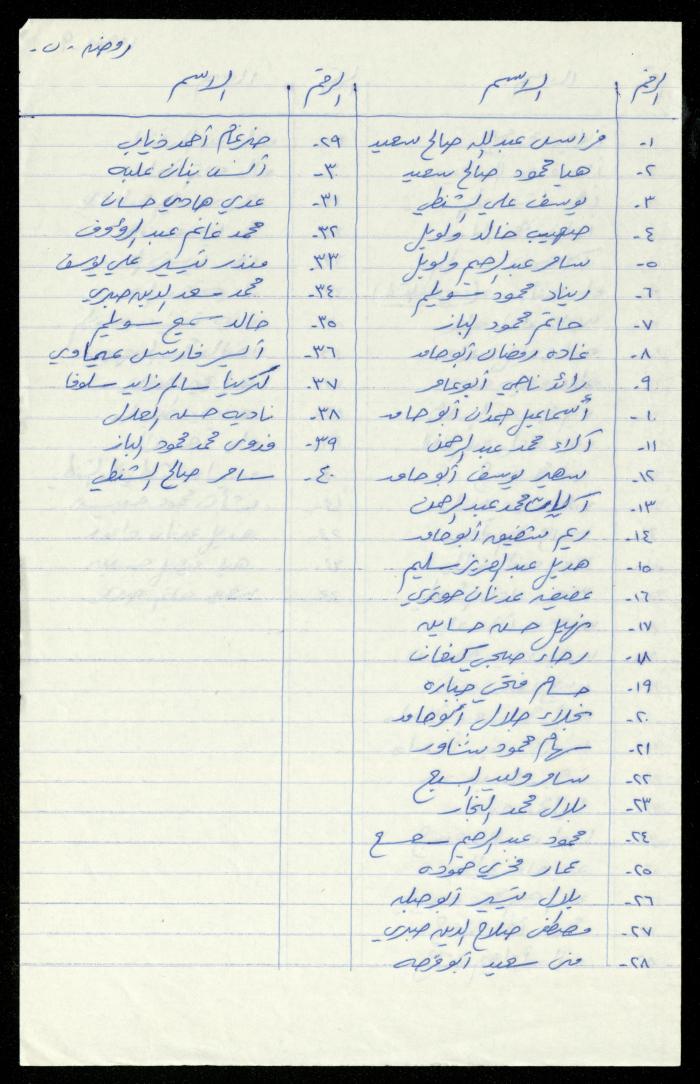 روضة -ب-
الرقم الاسم
١- فراس عبدالله صالح سعيد
٢- هبا محمود صالح سعيد
٣- يوسف علي الشنطي
٤- صهيب خالد ولويل
٥- سامر عبدالرحيم ولويل
٦- زيناد محمود سويلم
٧- حاتم محمود الباز
٨- غاده رمضان أبوحامد
٩- رائد ناجي أبوعامر
١٠- أسماعيل حمدان أبوحامد
١١- آلاء محمد عبدالرحمن
١٢- سهير يوسف أبوحامد
١٣- محمد عبدالرحمن
١٤- ريم شفيق أبوحامد
١٥- هديل عبدالعزيز سليم
١٦- عفيفه عدنان حوتري
١٧- حسن
١٨- رجاء صبحي كنعان
١٩- حسام فتحي جباره
٢٠- نجلاء جلال أبوحامد
٢١- سهام محمود بشاور
٢٢- سامر وليد السبع
٢٣- بلال محمد النجار
٢٤- محمود عبدالرحيم
٢٥- عمار فخري حموده
٢٦- بلال تيسير أبوصلبه
٢٧- مصطفى صلاح الدين صبري
٢٨- منى سعيد أبوقرحه
الرقم الاسم
٢٩- ضرغام أحمد ذياب
٣٠- ألنسه بنان علبه
٣١- عدي هادي حسان
٣٢- محمد غانم عبدالرؤوف
٣٣- منذر تيسير علي يوسف
٣٤- محمد سعدالدين صبري
٣٥- خالد سميع سويلم
٣٦- فارس
٣٧- سالم زايد سلوفا
٣٨- ناديه حسن العدل
٣٩- فدوى محمد محمود الباز
٤٠- سامر صالح الشنطي